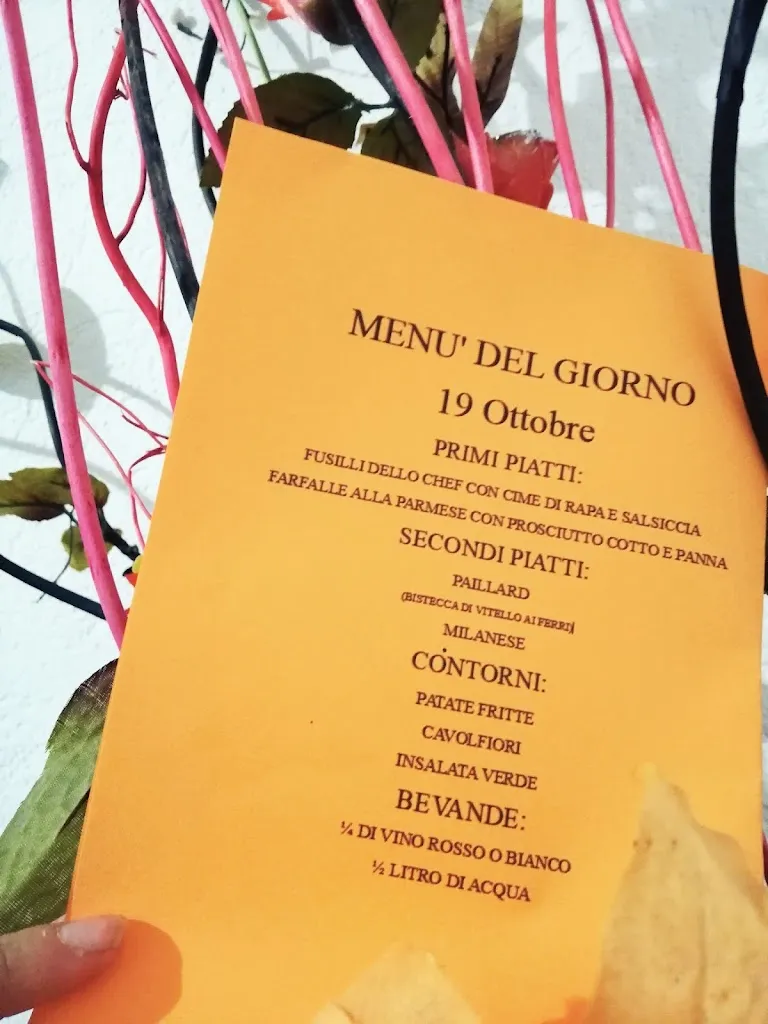 MENU' DEL GIORNO
19 Ottobre
PRIMI PIATTI:
FUSILLI DELLO CHEF CON CIME DI RAPA E SALSICCIA
FARFALLE ALLA PARMESE CON PROSCIUTTO COTTO E PANNA
SECONDI PIATTI:
PAILLARD
(BISTECCA DI VITELLO AI FERRI)
MILANESE
CONTORNI:
PATATE FRITTE
CAVOLFIORI
INSALATA VERDE
BEVANDE:
¼ DI VINO ROSSO O BIANCO
½ LITRO DI ACQUA